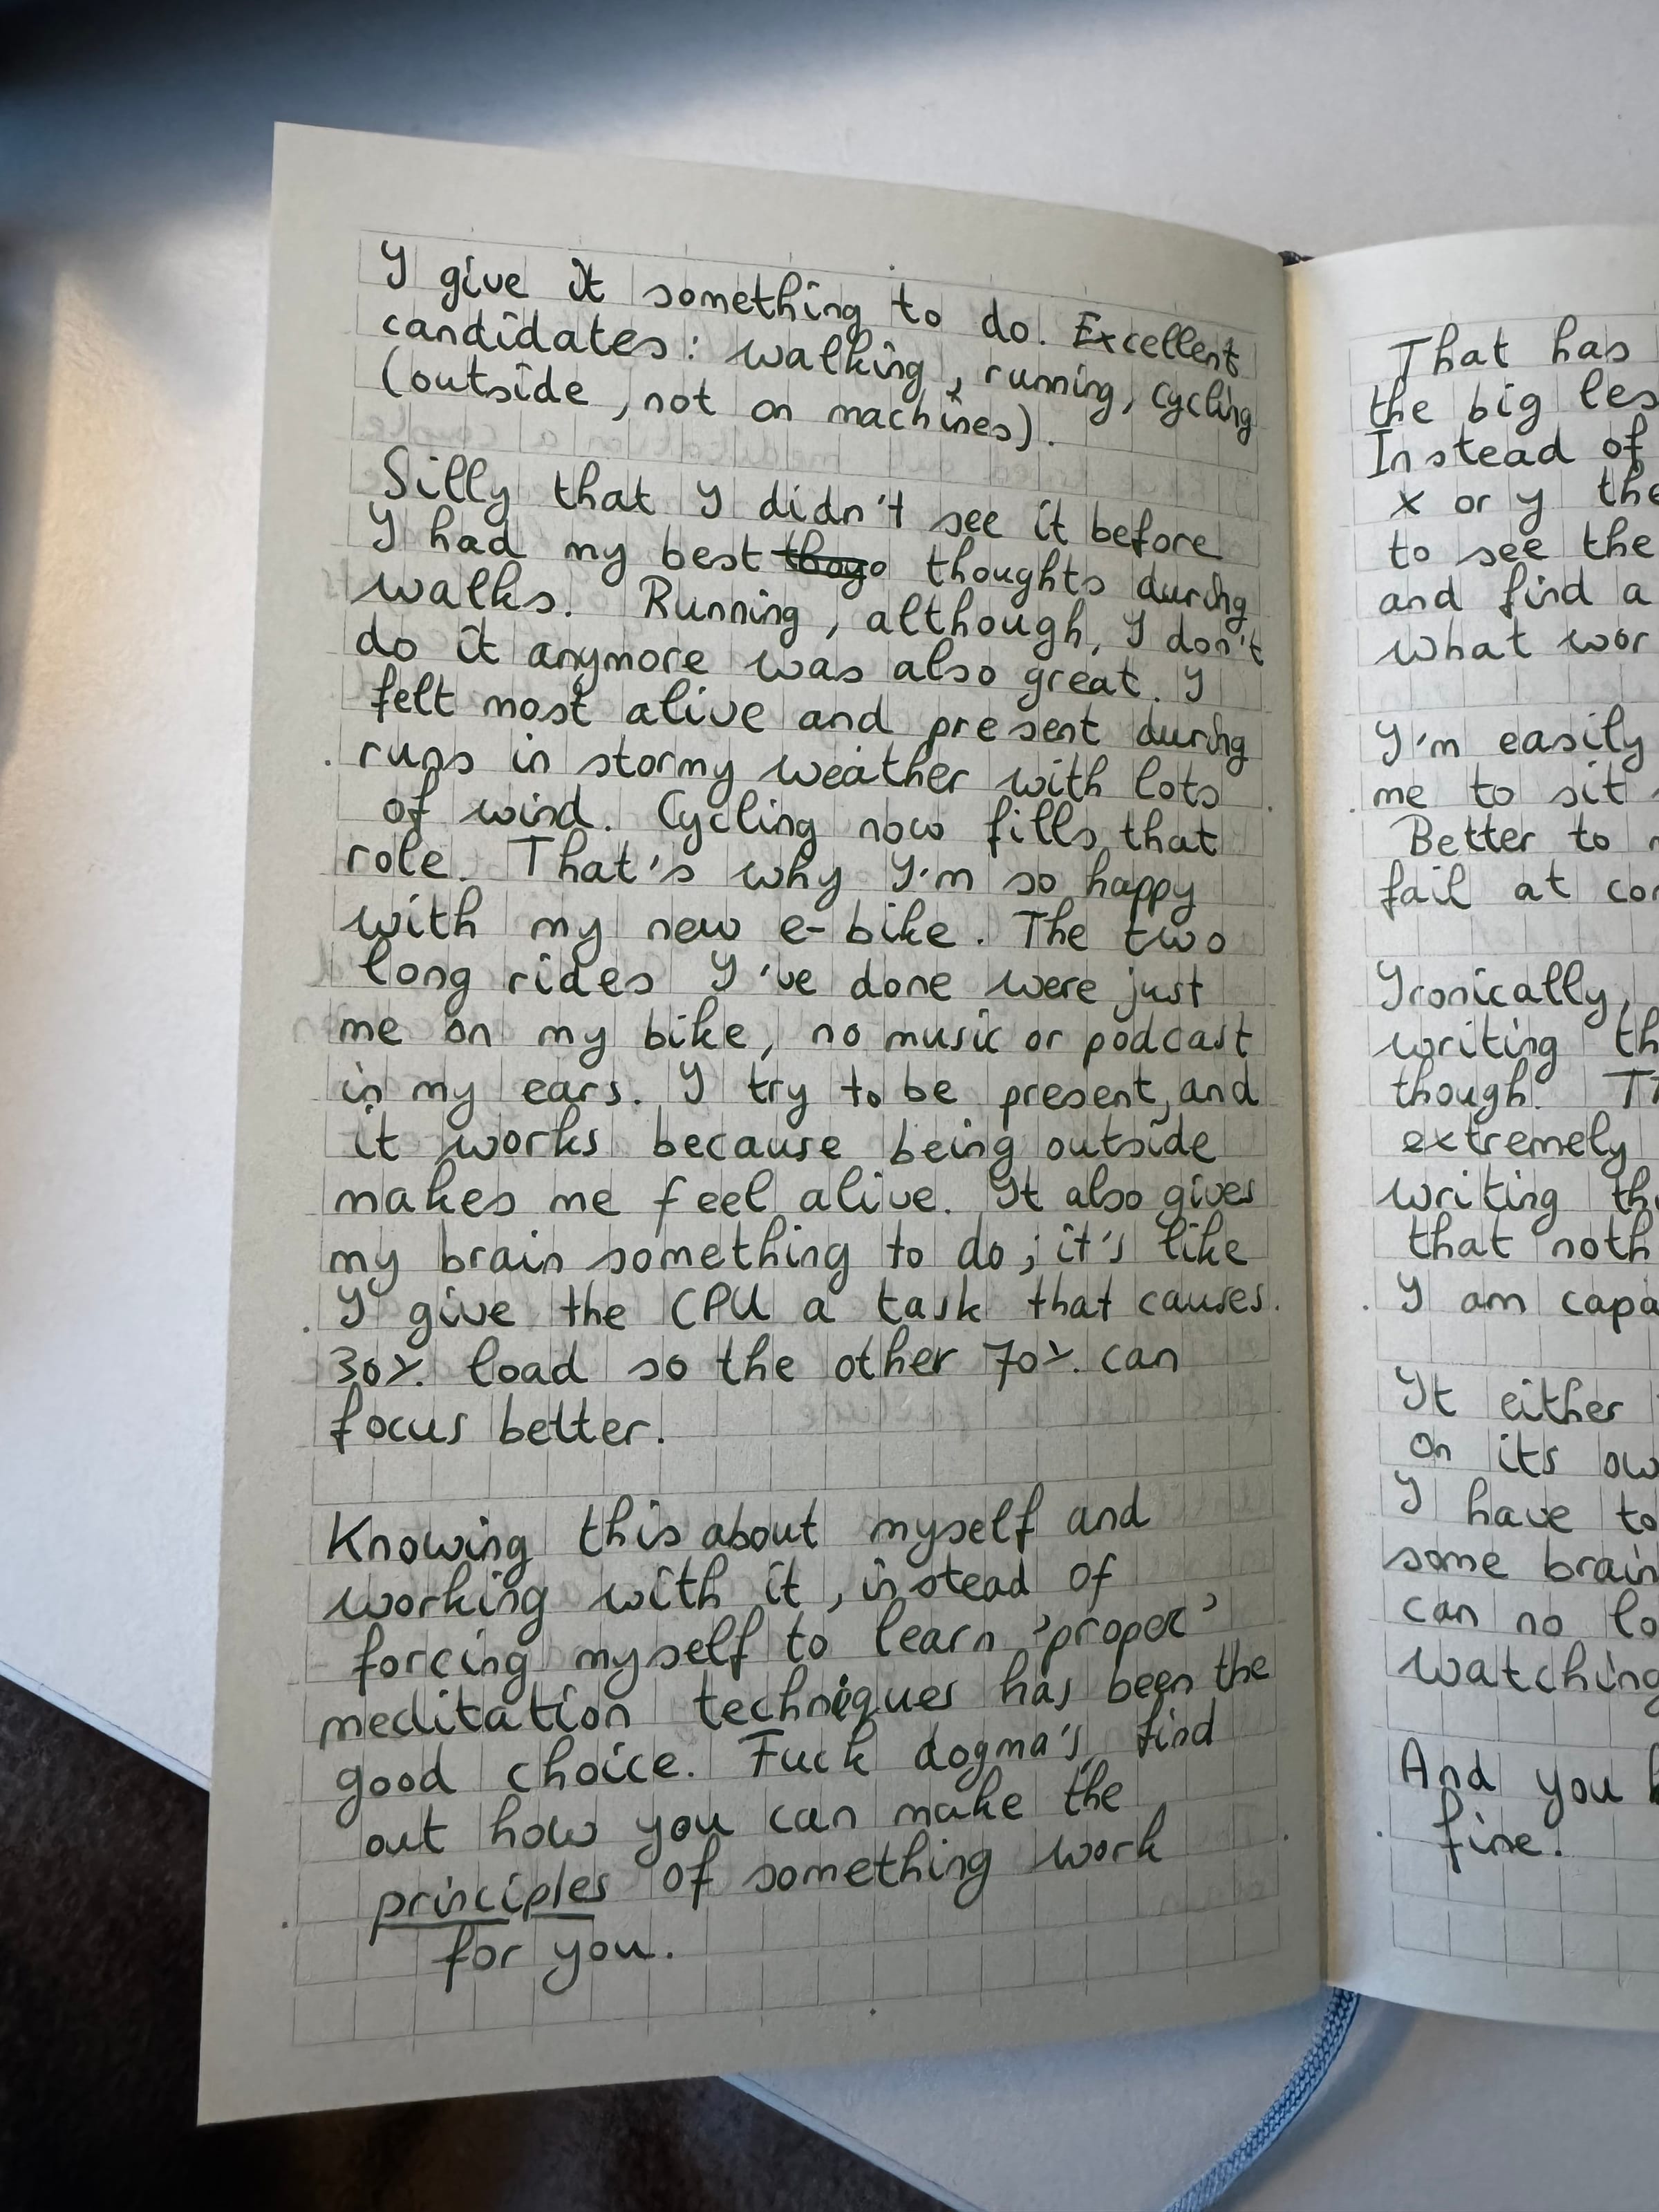 I give it something to do. Excellent
candidates: walking, running, cycling
(outside, not on machines).
Silly that I didn't see it before
I had my best thoughts during
walks. Running, although, I don't
do it anymore was also great. I
felt most alive and present during
runs in stormy weather with lots
of wind. Cycling now fills that
role. That's why I'm so happy
with my new e-bike. The two
long rides I've done were just
me on my bike, no music or podcast
in my ears. I try to be present, and
it works because being outside
makes me feel alive. It also gives
my brain something to do; it's like
I give the CPU a task that causes
30% load so the other 70% can
focus better.
Knowing this about myself and
working with it, instead of
forcing myself to learn 'proper'
meditation techniques has been the
good choice. Fuck dogma's, find
out how you can make the
principles of something work
for you.
That has
the big les
Instead of
x or y the
to see the
and find a
what wor
I'm easily
me to sit
Better to
fail at con
Ironically,
writing th
though. Th
extremely
writing the
that noth
I am capa
It either
on its ow
I have to
some brain
can no lo
watching
And you
fine.